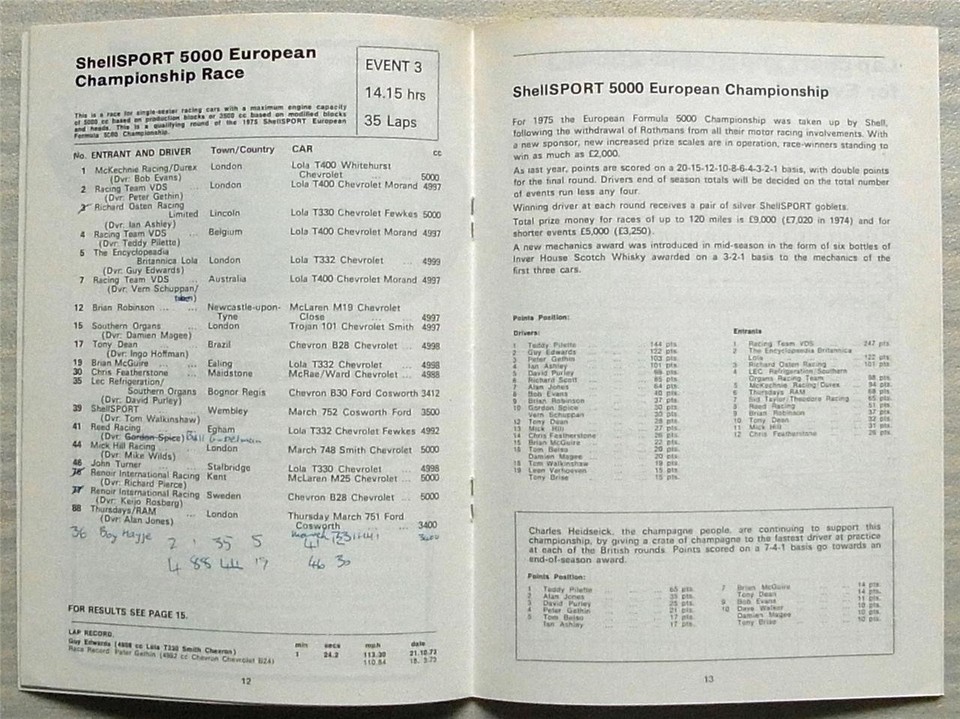 ShellSPORT 5000 European
Championship Race
EVENT 3
14.15 hrs
35 Laps
This is a race for single-seater racing cars with a maximum engine capacity
of 5000 cc based on production blocks or 3500 cc based on modified blocks
and heads. This is a qualifying round of the 1975 ShellSPORT European
Formula 5000 Championship.
No. ENTRANT AND DRIVER Town/Country CAR cc
1 McKechnie Racing/Durex London Lola T400 Whitehurst
(Dvr: Bob Evans) Chevrolet ... ... 5000
2 Racing Team VDS ... London Lola T400 Chevrolet Morand 4997
(Dvr: Peter Gethin)
3 Richard Osten Racing
Limited Lincoln Lola T330 Chevrolet Fewkes 5000
(Dvr: Ian Ashley)
4 Racing Team VDS ... Belgium Lola T400 Chevrolet Morand 4997
(Dvr: Teddy Pilette)
5 The Encyclopeadia
Britannica Lola London Lola T332 Chevrolet ... 4999
(Dvr: Guy Edwards)
7 Racing Team VDS ... Australia Lola T400 Chevrolet Morand 4997
(Dvr: Vern Schuppan/
12 Brian Robinson ... ... Newcastle-upon- McLaren M19 Chevrolet
Tyne Close ... ... 4997
15 Southern Organs ... London Trojan 101 Chevrolet Smith 4997
(Dvr: Damien Magee)
17 Tony Dean ... Brazil Chevron B28 Chevrolet ... 4998
(Dvr: Ingo Hoffman)
19 Brian McGuire ... Ealing Lola T332 Chevrolet ... 4998
30 Chris Featherstone ... Maidstone McRae/Ward Chevrolet ... 4988
35 Lec Refrigeration/
Southern Organs Bognor Regis Chevron B30 Ford Cosworth 3412
(Dvr: David Purley)
39 ShellSPORT ... Wembley March 752 Cosworth Ford 3500
(Dvr: Tom Walkinshaw)
41 Reed Racing ... Egham Lola T332 Chevrolet Fewkes 4992
(Dvr: Gordon Spice)
44 Mick Hill Racing ... London March 748 Smith Chevrolet 5000
(Dvr: Mike Wilds)
46 John Turner ... Stalbridge Lola T330 Chevrolet ... 4998
76 Renoir International Racing Kent McLaren M25 Chevrolet ... 5000
(Dvr: Richard Pierce)
77 Renoir International Racing Sweden Chevron B28 Chevrolet ... 5000
(Dvr: Keijo Rosberg)
88 Thursdays/RAM ... London Thursday March 751 Ford
(Dvr: Alan Jones) Cosworth ... ... 3400
36 Boy Hayje
2 1 35 5 41 12
4 88 44 17 46 30
FOR RESULTS SEE PAGE 15.
LAP RECORD. min secs mph date
Guy Edwards (4998 cc Lola T330 Smith Chevron) 1 24.2 113.30 21.10.73
Race Record: Peter Gethin (4992 cc Chevron Chevrolet B24) 110.84 18. 3.73
12
ShellSPORT 5000 European Championship
For 1975 the European Formula 5000 Championship was taken up by Shell,
following the withdrawal of Rothmans from all their motor racing involvements. With
a new sponsor, new increased prize scales are in operation, race-winners standing to
win as much as £2,000.
As last year, points are scored on a 20-15-12-10-8-6-4-3-2-1 basis, with double points
for the final round. Drivers end of season totals will be decided on the total number
of events run less any four.
Winning driver at each round receives a pair of silver ShellSPORT goblets.
Total prize money for races of up to 120 miles is £9,000 (£7,020 in 1974) and for
shorter events £5,000 (£3,250).
A new mechanics award was introduced in mid-season in the form of six bottles of
Inver House Scotch Whisky awarded on a 3-2-1 basis to the mechanics of the
first three cars.
Points Position:
Drivers:
1 Teddy Pilette 144 pts.
2 Guy Edwards 122 pts.
3 Peter Gethin 103 pts.
4 Ian Ashley 101 pts.
5 David Purley
6 Richard Scott
7 Alan Jones
8 Bob Evans
9 Brian Robinson 37 pts.
10 Gordon Spice
Vern Schuppan
12 Tony Dean
13 Mick Hill
14 Chris Featherstone 26 pts.
15 Brian McGuire
16 Tom Belso 20 pts.
Damien Magee 20 pts.
18 Tom Walkinshaw 19 pts.
19 Leen Verhoeven 15 pts.
Tony Brise 15 pts.
Entrants
1 Racing Team VDS 247 pts.
2 The Encyclopaedia Britannica
Lola 122 pts.
3 Richard Osten Racing 101 pts.
4 LEC Refrigeration/Southern
Organs Racing Team
5 McKechnie Racing/Durex
6 Thursdays RAM
7 Sid Taylor/Theodore Racing
8 Reed Racing
9 Brian Robinson 37 pts.
10 Tony Dean
11 Mick Hill
12 Chris Featherstone 26 pts.
Charles Heidseick, the champagne people, are continuing to support this
championship, by giving a crate of champagne to the fastest driver at practice
at each of the British rounds. Points scored on a 7-4-1 basis go towards an
end-of-season award.
Points Position:
1 Teddy Pilette 65 pts.
2 Alan Jones
3 David Purley 25 pts.
4 Peter Gethin 21 pts.
5 Tom Belso 17 pts.
Ian Ashley 17 pts.
7 Brian McGuire 14 pts.
Tony Dean 14 pts.
9 Bob Evans 11 pts.
10 Dave Walker 10 pts.
Damien Magee 10 pts.
Tony Brise 10 pts.
13